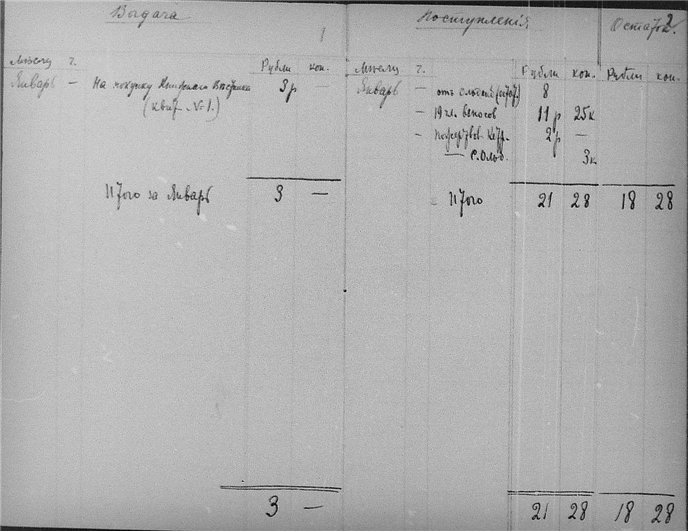 Выдача
1
Поступленія
Остатк.
2
Мѣсяц ч. Рубли коп.
Мѣсяц ч. Рубли коп. Рубли коп.
Январь — На покупку 3 р —
(квит. № 1.)
Январь — отъ 8
— 19 чл. взносов 11 р 25 к
— Пожертвов. 2 р —
— 3 к
Итого за Январь 3 —
Итого 21 28 18 28
3 —
21 28 18 28